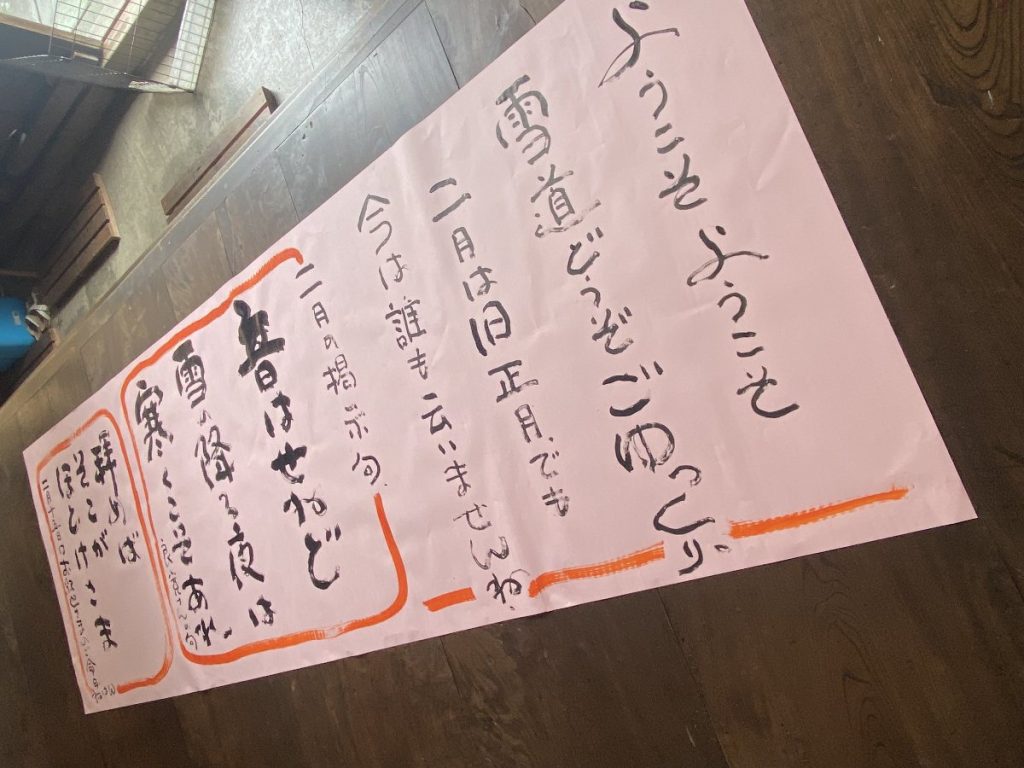 ようこそようこそ
雪道どうぞごゆっくり
二月は旧正月でも
今は誰も云いませんね
二月の掲示句
音はせねど
雪の降る夜は
寒くこそあれ
拝めば
そこが
ほとけさま